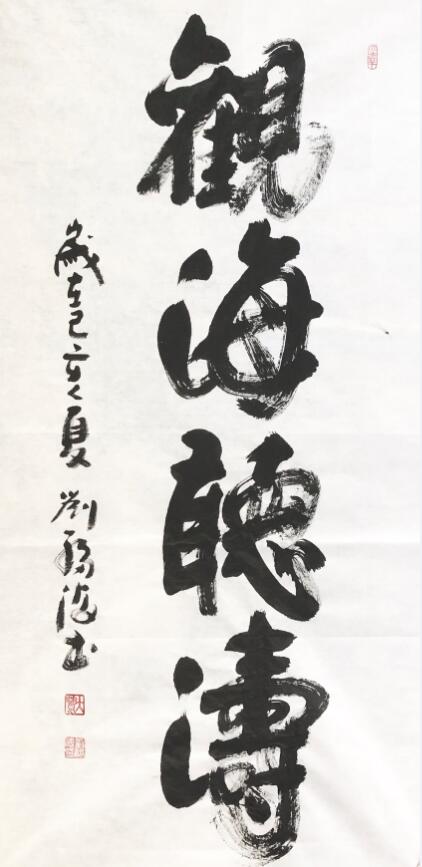 觀海聽濤
歲在己亥夏 劉 海書